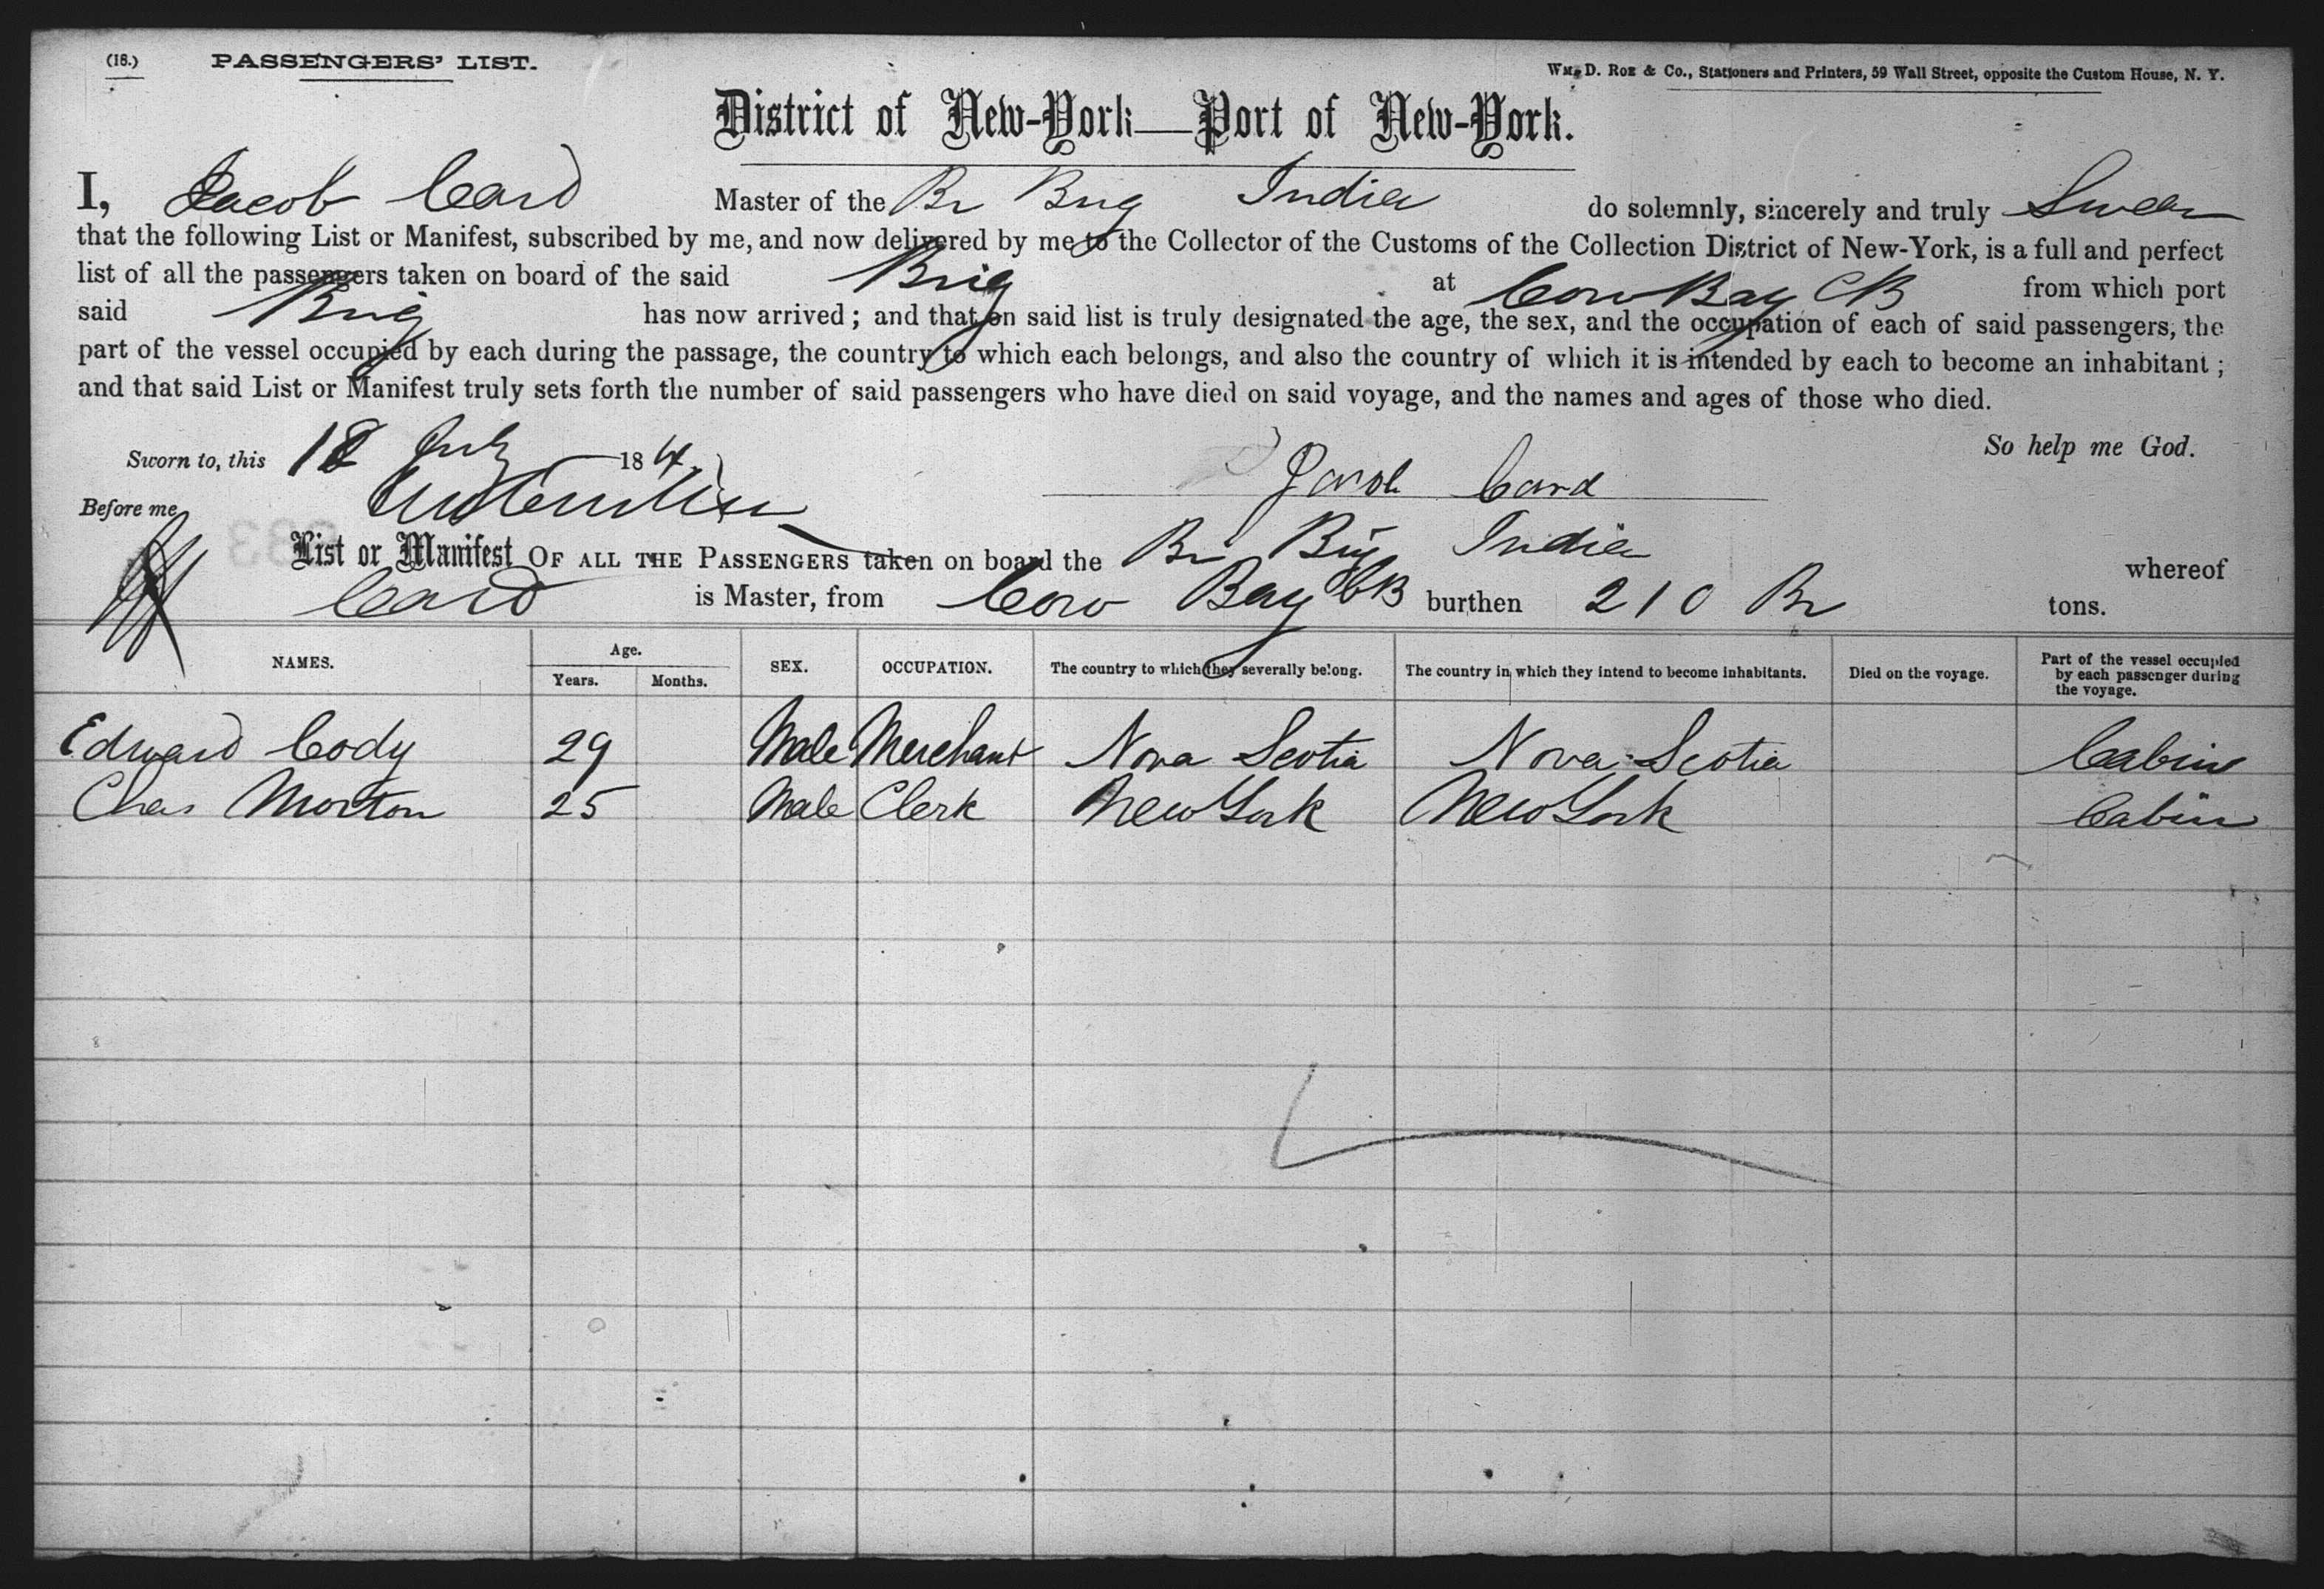 (18.) PASSENGERS' LIST.
WM. D. ROE & Co., Stationers and Printers, 59 Wall Street, opposite the Custom House, N. Y.
District of New-York—Port of New-York.
I, Jacob Card Master of the Br Brig India do solemnly, sincerely and truly Swear
that the following List or Manifest, subscribed by me, and now delivered by me to the Collector of the Customs of the Collection District of New-York, is a full and perfect
list of all the passengers taken on board of the said Brig at Cow Bay CB from which port
said Brig has now arrived; and that on said list is truly designated the age, the sex, and the occupation of each of said passengers, the
part of the vessel occupied by each during the passage, the country to which each belongs, and also the country of which it is intended by each to become an inhabitant;
and that said List or Manifest truly sets forth the number of said passengers who have died on said voyage, and the names and ages of those who died.
So help me God.
Sworn to, this 18 July 1864
Jacob Card
Before me
List or Manifest OF ALL THE PASSENGERS taken on board the Br Brig India whereof
Card is Master, from Cow Bay CB burthen 210 Br tons.
NAMES. Age. Years. Months. SEX. OCCUPATION. The country to which they severally belong. The country in which they intend to become inhabitants. Died on the voyage. Part of the vessel occupied by each passenger during the voyage.
Edward Cody 29 Male Merchant Nova Scotia Nova Scotia Cabin
Chas Morton 25 Male Clerk New York New York Cabin